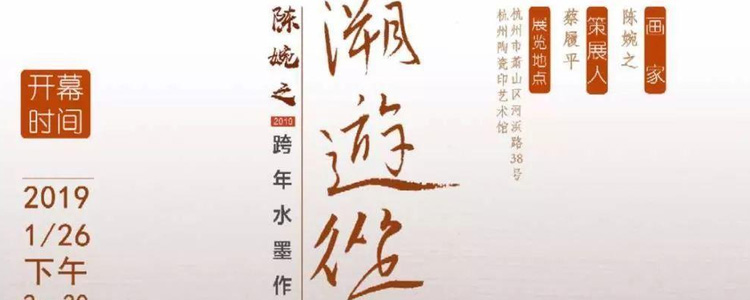 画家
陈婉之
策展人
蔡履平
展览地点
杭州市萧山区河滨路38号
杭州陶瓷印艺术馆
溯遊從
陈婉之
跨年水墨作
开幕
时间
2019
1/26
下午